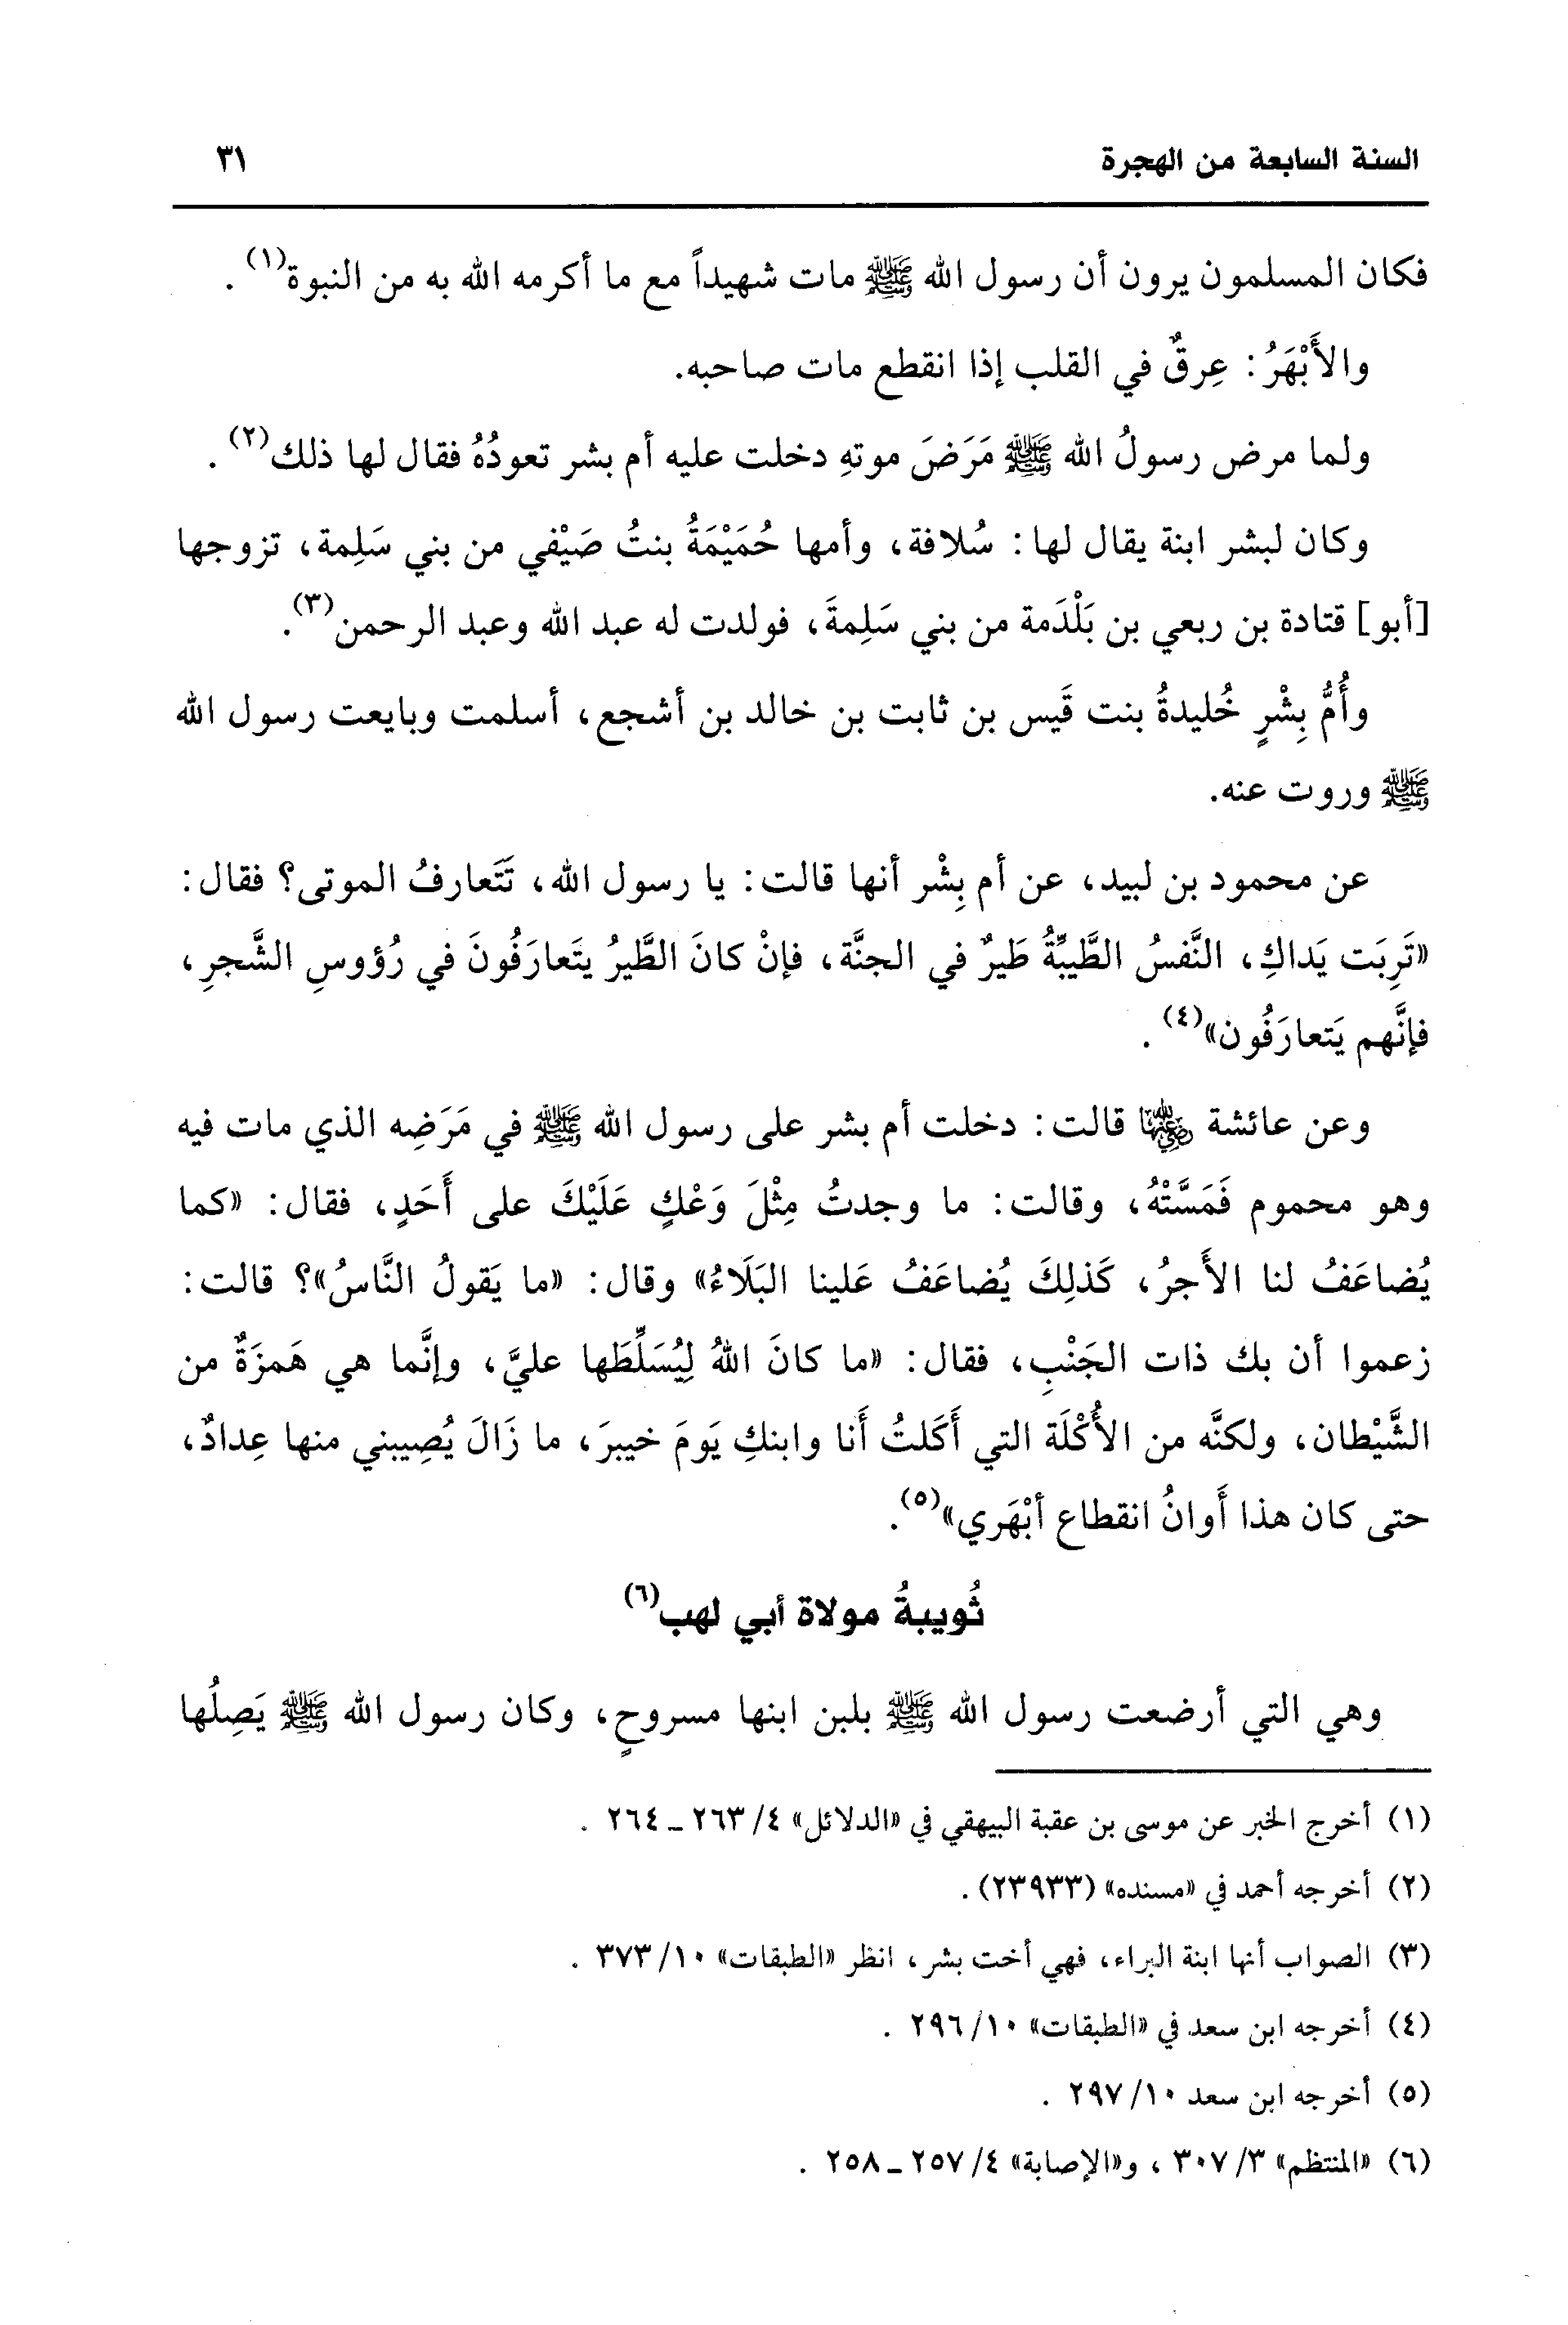 السنة السابعة من الهجرة ٣١
فكان المسلمون يرون أن رسول الله ﷺ مات شهيداً مع ما أكرمه الله به من النبوة(١) .
والأَبْهَرُ: عِرقٌ في القلب إذا انقطع مات صاحبه.
ولما مرض رسولُ الله ﷺ مَرَضَ موتهِ دخلت عليه أم بشر تعودُهُ فقال لها ذلك(٢) .
وكان لبشر ابنة يقال لها: سُلافة، وأمها حُمَيْمَةُ بنتُ صَيْفي من بني سَلِمة، تزوجها
[أبو] قتادة بن ربعي بن بَلْدَمة من بني سَلِمةَ، فولدت له عبد الله وعبد الرحمن(٣).
وأُمُّ بِشْرٍ خُليدةُ بنت قَيس بن ثابت بن خالد بن أشجع، أسلمت وبايعت رسول الله
ﷺ وروت عنه.
عن محمود بن لبيد، عن أم بِشْر أنها قالت: يا رسول الله، تَتَعارفُ الموتى؟ فقال:
«تَرِبَت يَداكِ، النَّفسُ الطَّيبِّةُ طَيرٌ في الجنَّة، فإنْ كانَ الطَّيرُ يتَعارَفُونَ في رُؤوسِ الشَّجرِ،
فإنَّهم يَتعارَفُون»(٤) .
وعن عائشة رضي الله عنها قالت: دخلت أم بشر على رسول الله ﷺ في مَرَضِه الذي مات فيه
وهو محموم فَمَسَّتْهُ، وقالت: ما وجدتُ مِثْلَ وَعْكٍ عَلَيْكَ على أَحَدٍ، فقال: «كما
يُضاعَفُ لنا الأَجرُ، كَذلِكَ يُضاعَفُ عَلينا البَلَاءُ» وقال: «ما يَقولُ النَّاسُ»؟ قالت:
زعموا أن بك ذات الجَنْبِ، فقال: «ما كانَ اللهُ لِيُسَلِّطَها عليَّ، وإنَّما هي هَمزَةٌ من
الشَّيْطان، ولكنَّه من الأُكْلَة التي أَكَلتُ أَنا وابنكِ يَومَ خيبرَ، ما زَالَ يُصِيبني منها عِدادٌ،
حتى كان هذا أَوانُ انقطاع أبْهَري»(٥).
ثُويبةُ مولاة أبي لهب(٦)
وهي التي أرضعت رسول الله ﷺ بلبن ابنها مسروحٍ، وكان رسول الله ﷺ يَصِلُها
(١) أخرج الخبر عن موسى بن عقبة البيهقي في «الدلائل» ٤/ ٢٦٣ ـ ٢٦٤ .
(٢) أخرجه أحمد في «مسنده» (٢٣٩٣٣).
(٣) الصواب أنها ابنة البراء، فهي أخت بشر، انظر «الطبقات» ١٠/ ٣٧٣ .
(٤) أخرجه ابن سعد في «الطبقات» ١٠/ ٢٩٦ .
(٥) أخرجه ابن سعد ١٠/ ٢٩٧ .
(٦) «المنتظم» ٣/ ٣٠٧ ، و«الإصابة» ٤/ ٢٥٧ ـ ٢٥٨ .